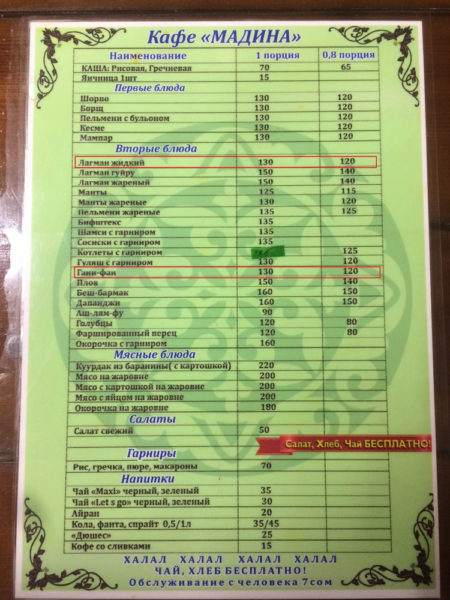 Кафе «МАДИНА»
Наименование 1 порция 0,8 порция
КАША: Рисовая, Гречневая 70 65
Яичница 1шт 15
Первые блюда
Шорпо 130 120
Борщ 130 120
Пельмени с бульоном 130 120
Кесме 130 120
Мампар 130 120
Вторые блюда
Лагман жидкий 130 120
Лагман гуйру 150 140
Лагман жареный 150 140
Манты 125 115
Манты жареные 130 120
Пельмени жареные 135 125
Бифштекс 135
Шамси с гарниром 135
Сосиски с гарниром 135
Котлеты с гарниром 125
Гуляш с гарниром 130 120
Гани-фан 130 120
Плов 150 140
Беш-бармак 160 150
Дапанджи 160 150
Аш-лям-фу 90
Голубцы 120 80
Фаршированный перец 120 80
Окорочка с гарниром 160
Мясные блюда
Куурдак из баранины( с картошкой) 220
Мясо на жаровне 200
Мясо с картошкой на жаровне 200
Мясо с яйцом на жаровне 200
Окорочка на жаровне 180
Салаты
Салат свежий 50
Салат, Хлеб, Чай БЕСПЛАТНО!
Гарниры
Рис, гречка, пюре, макароны 70
Напитки
Чай «Maxi» черный, зеленый 35
Чай «Let s go» черный, зеленый 30
Айран 20
Кола, фанта, спрайт 0,5/1л 35/45
«Дюшес» 25
Кофе со сливками 15
ХАЛАЛ ХАЛАЛ ХАЛАЛ ХАЛАЛ
ЧАЙ, ХЛЕБ БЕСПЛАТНО!
Обслуживание с человека 7сом